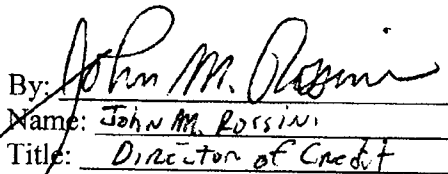 By: John M. Rossini
Name: John M. Rossini
Title: Director of Credit